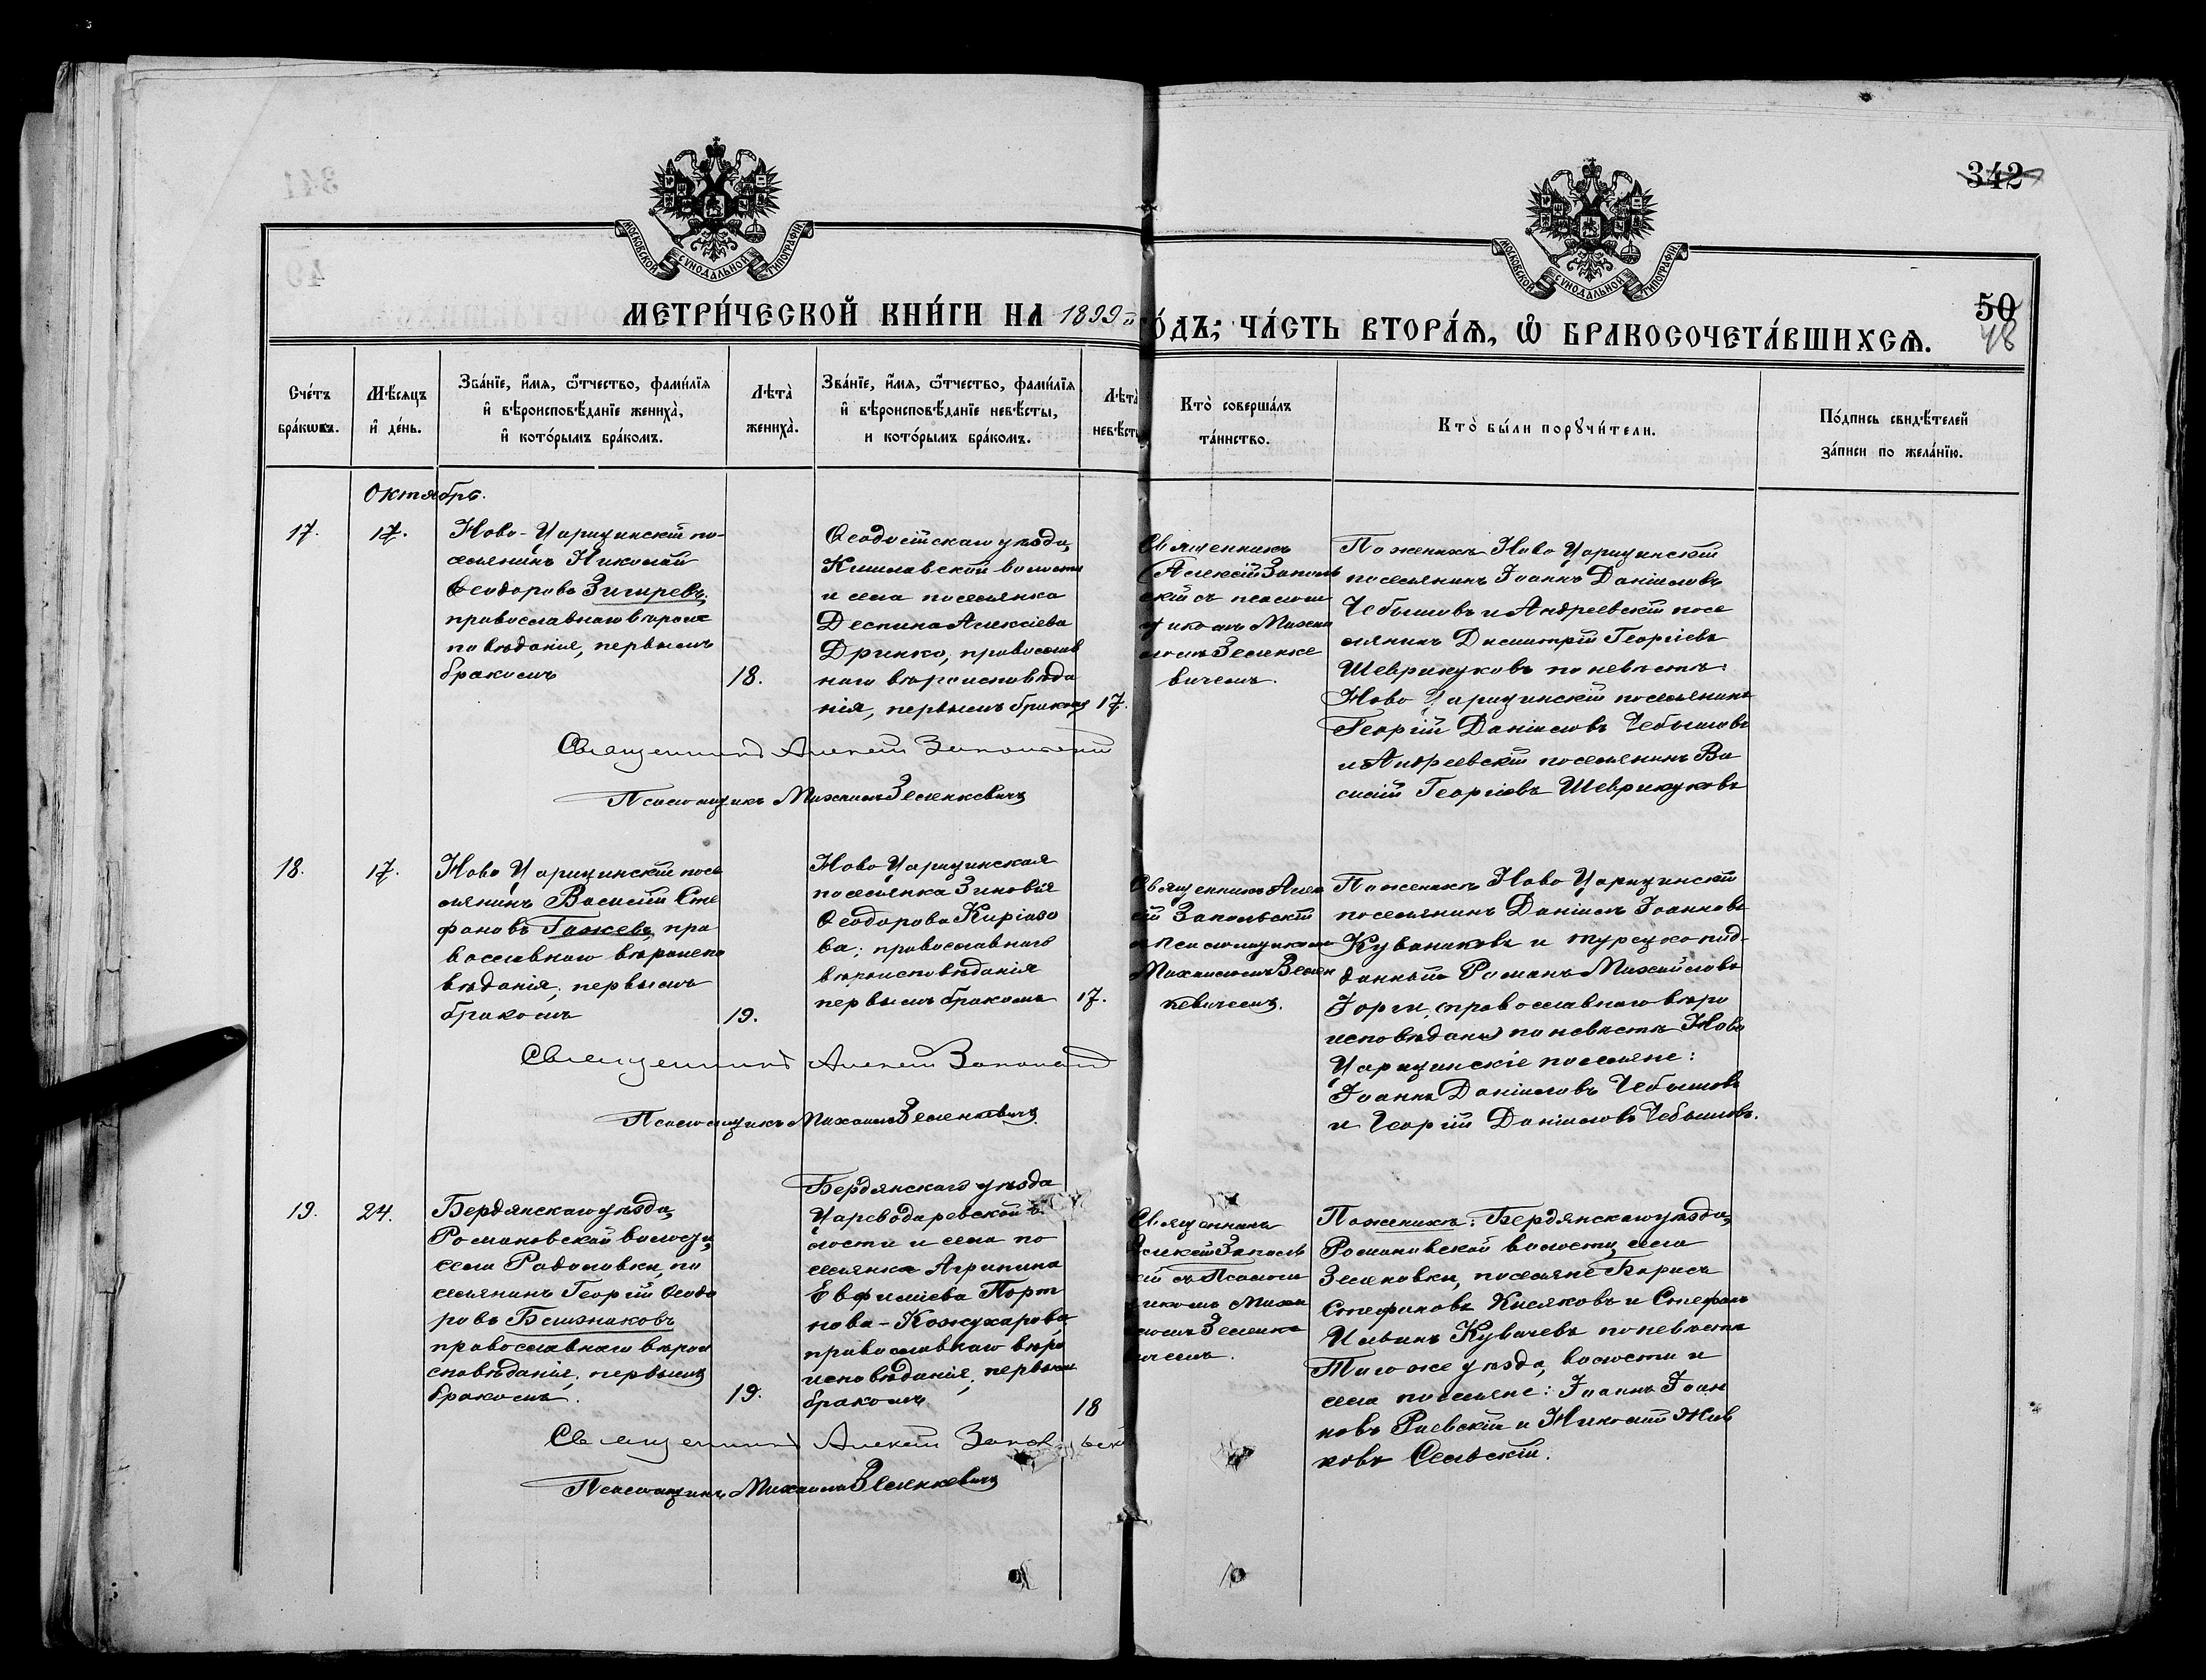 342
50
48
МОСКОВСКОЙ СѴНОДАЛЬНОЙ ТИПОГРАФІИ
МОСКОВСКОЙ СѴНОДАЛЬНОЙ ТИПОГРАФІИ
МЕТРИ́ЧЕСКОЙ КНИ́ГИ НА 1899й ГО́ДЪ; ЧА́СТЬ ВТОРА́Ѧ, Ѿ БРАКОСОЧЕТА́ВШИХСѦ.
Сче́тъ
бра́кѡвъ.
Мѣ́сяцъ
и҆ де́нь.
Зва́нїе, и҆́мя, ѻ҆́тчество, фами́лїя
и҆ вѣроисповѣ́данїе жениха̀,
и҆ кото́рымъ бра́комъ.
Лѣта̀
жениха̀.
Зва́нїе, и҆́мя, ѻ҆́тчество, фами́лїя
и҆ вѣроисповѣ́данїе невѣ́сты,
и кото́рымъ бра́комъ.
Лѣта̀
невѣ́сты
Кто̀ соверша́лъ
та́инство.
Кто̀ бы́ли порꙋчи́тели.
По́дпись свидѣ́телей
за́писи по жела́нїю.
Октябрь.
17.
17.
Ново-Царицинскій по-
селянинъ Николай
Ѳеодоровъ Зигиревъ,
православнаго вѣроис
повѣданія, первымъ
бракомъ
18.
Ѳеодосійскаго уѣзда,
Кишлавской волости
и села поселянка
Деспина Алексіева
Дринко, православ
наго вѣроисповѣда
нія, первымъ бракомъ
17.
Священникъ
Алексій Заполь
скій съ псалом
щикомъ Михаи
ломъ Зеленке
вичемъ.
По женихѣ Ново Царицинскій
поселянинъ Іоаннъ Даніиловъ
Чебышовъ и Андреевскій посе
лянинъ Димитрій Георгіевъ
Шеврикуковъ по невѣстѣ:
Ново Царицинскій поселянинъ
Георгій Даніиловъ Чебышовъ
и Андреевскій поселянинъ Ва
силій Георгіевъ Шеврикуковъ
Священникъ Алексій Запольскій
Псаломщикъ Михаилъ Зеленкевичъ
18.
17.
Ново Царицинскій посе
лянинъ Василій Сте
фановъ Гажевъ, пра
вославнаго вѣроиспо
вѣданія, первымъ
бракомъ
19.
Ново Царицинская
поселянка Зиновія
Ѳеодорова Киріазо
ва; православнаго
вѣроисповѣданія
первымъ бракомъ
17.
Священникъ Алек
сій Запольскій
съ Псаломщикомъ
Михаиломъ Зелен
кевичемъ.
По женихѣ Ново Царицинскій
поселянинъ Даніилъ Іоанновъ
Куванжовъ и турецко под-
данный Романъ Михайловъ
Іорги, православнаго вѣро
исповѣданія по невѣстѣ Ново
Царицинскіе поселяне:
Іоаннъ Даніиловъ Чебышовъ
и Георгій Даніиловъ Чебышовъ.
Священникъ Алексій Запольскій
Псаломщикъ Михаилъ Зеленкевичъ.
19.
24.
Бердянскаго уѣзда,
Романовской волости,
села Радоловки, по
селянинъ Георгій Ѳеодо
ровъ
православнаго вѣрои
сповѣданія, первымъ
бракомъ.
19.
Бердянскаго уѣзда
Цареводаревской во
лости и села по
селянка Агрипина
Евфиміева Порт
нова-Кожухарова
православнаго вѣро
исповѣданія, первымъ
бракомъ.
18
Священникъ
Алексій Заполь
скій съ Псалом
щикомъ Михаи
ломъ Зеленке
вичемъ.
По женихѣ: Бердянскаго уѣзда,
Романовской волости, села
Зеленовки, поселяне Борисъ
Стефановъ Кисяковъ и Стефанъ
Ильинъ Кувачевъ по невѣстѣ
Того же уѣзда, волости и
села поселяне: Іоаннъ Іоан
новъ Раевскій и Николай Жив
ковъ Сельскій.
Священникъ Алексій Запольскій
Псаломщикъ Михаилъ Зеленкевичъ